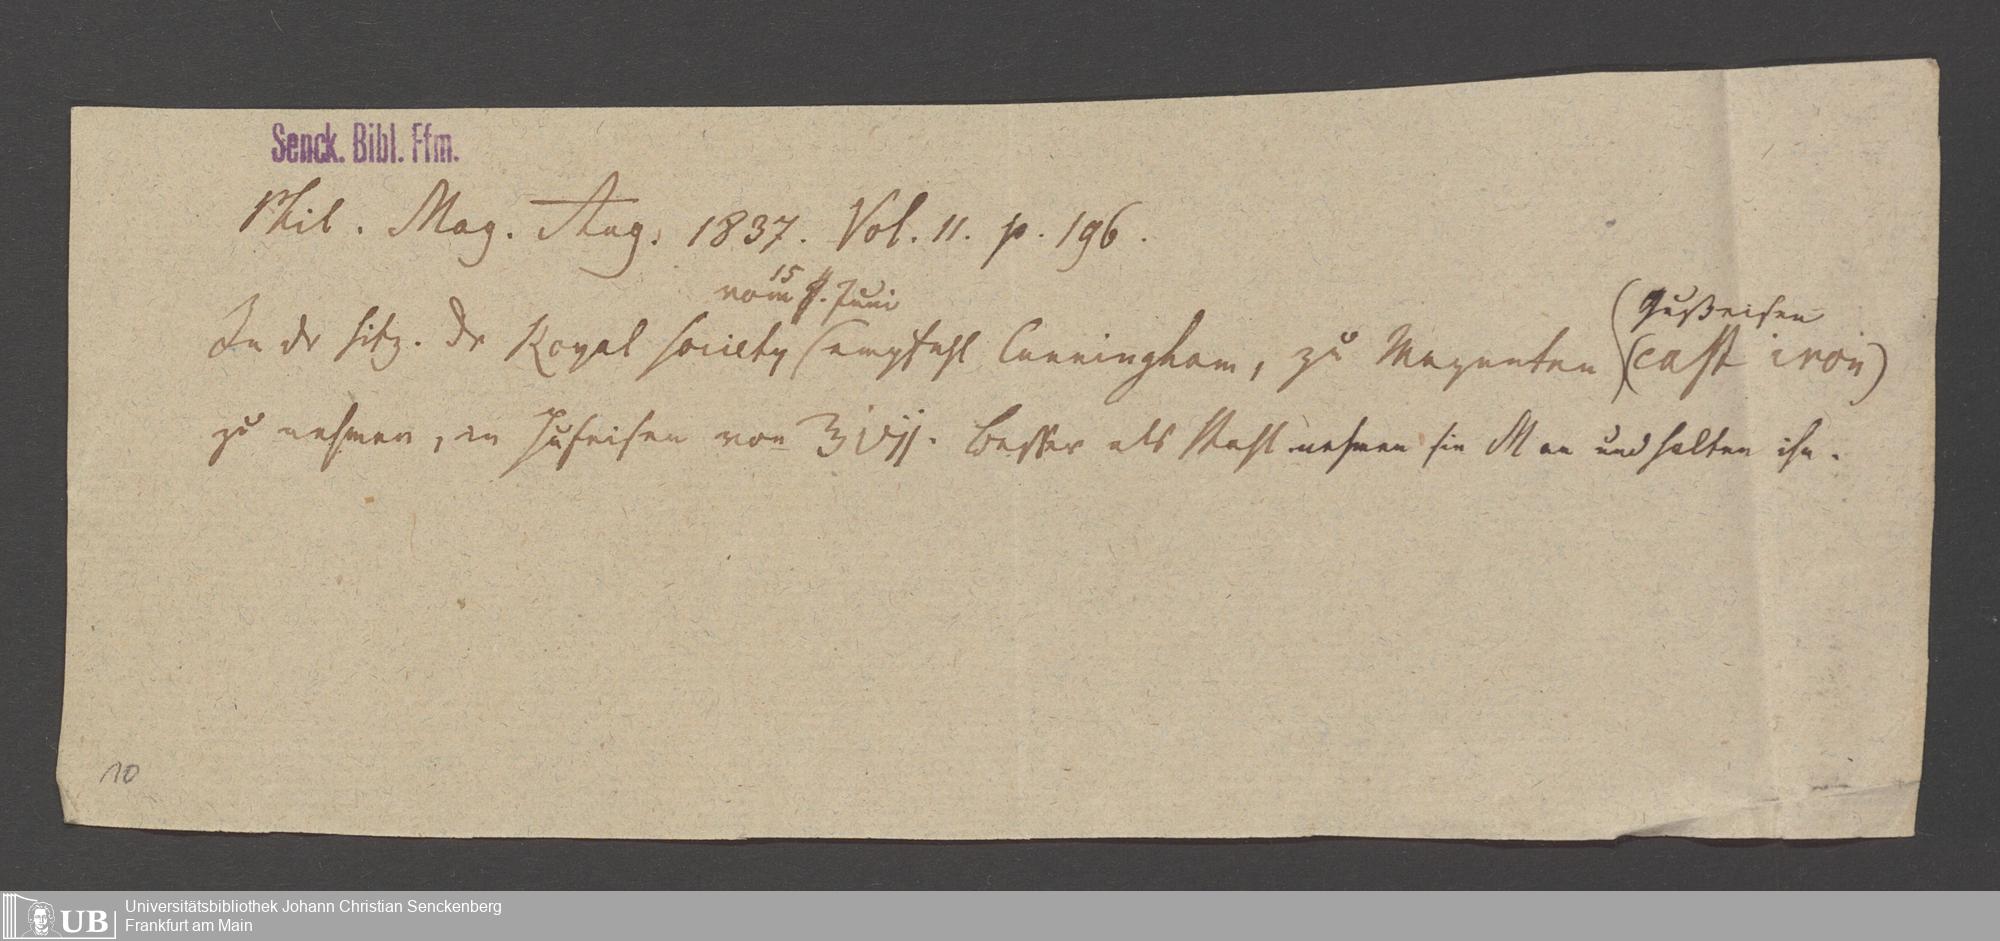 Senck. Bibl. Ffm.
Phil. Mag. Aug. 1837. Vol. 11. p. 196.
vom 15 Juni
(Gußeisen
In dr Sitz. dr Royal Society empfehl Cunningham, zu Magneten (cast iron)
zu nehmen, in Hufeisen von Besser als Stahl nehmen sie M an und halten ihn.
10
UB
Universitätsbibliothek Johann Christian Senckenberg
Frankfurt am Main